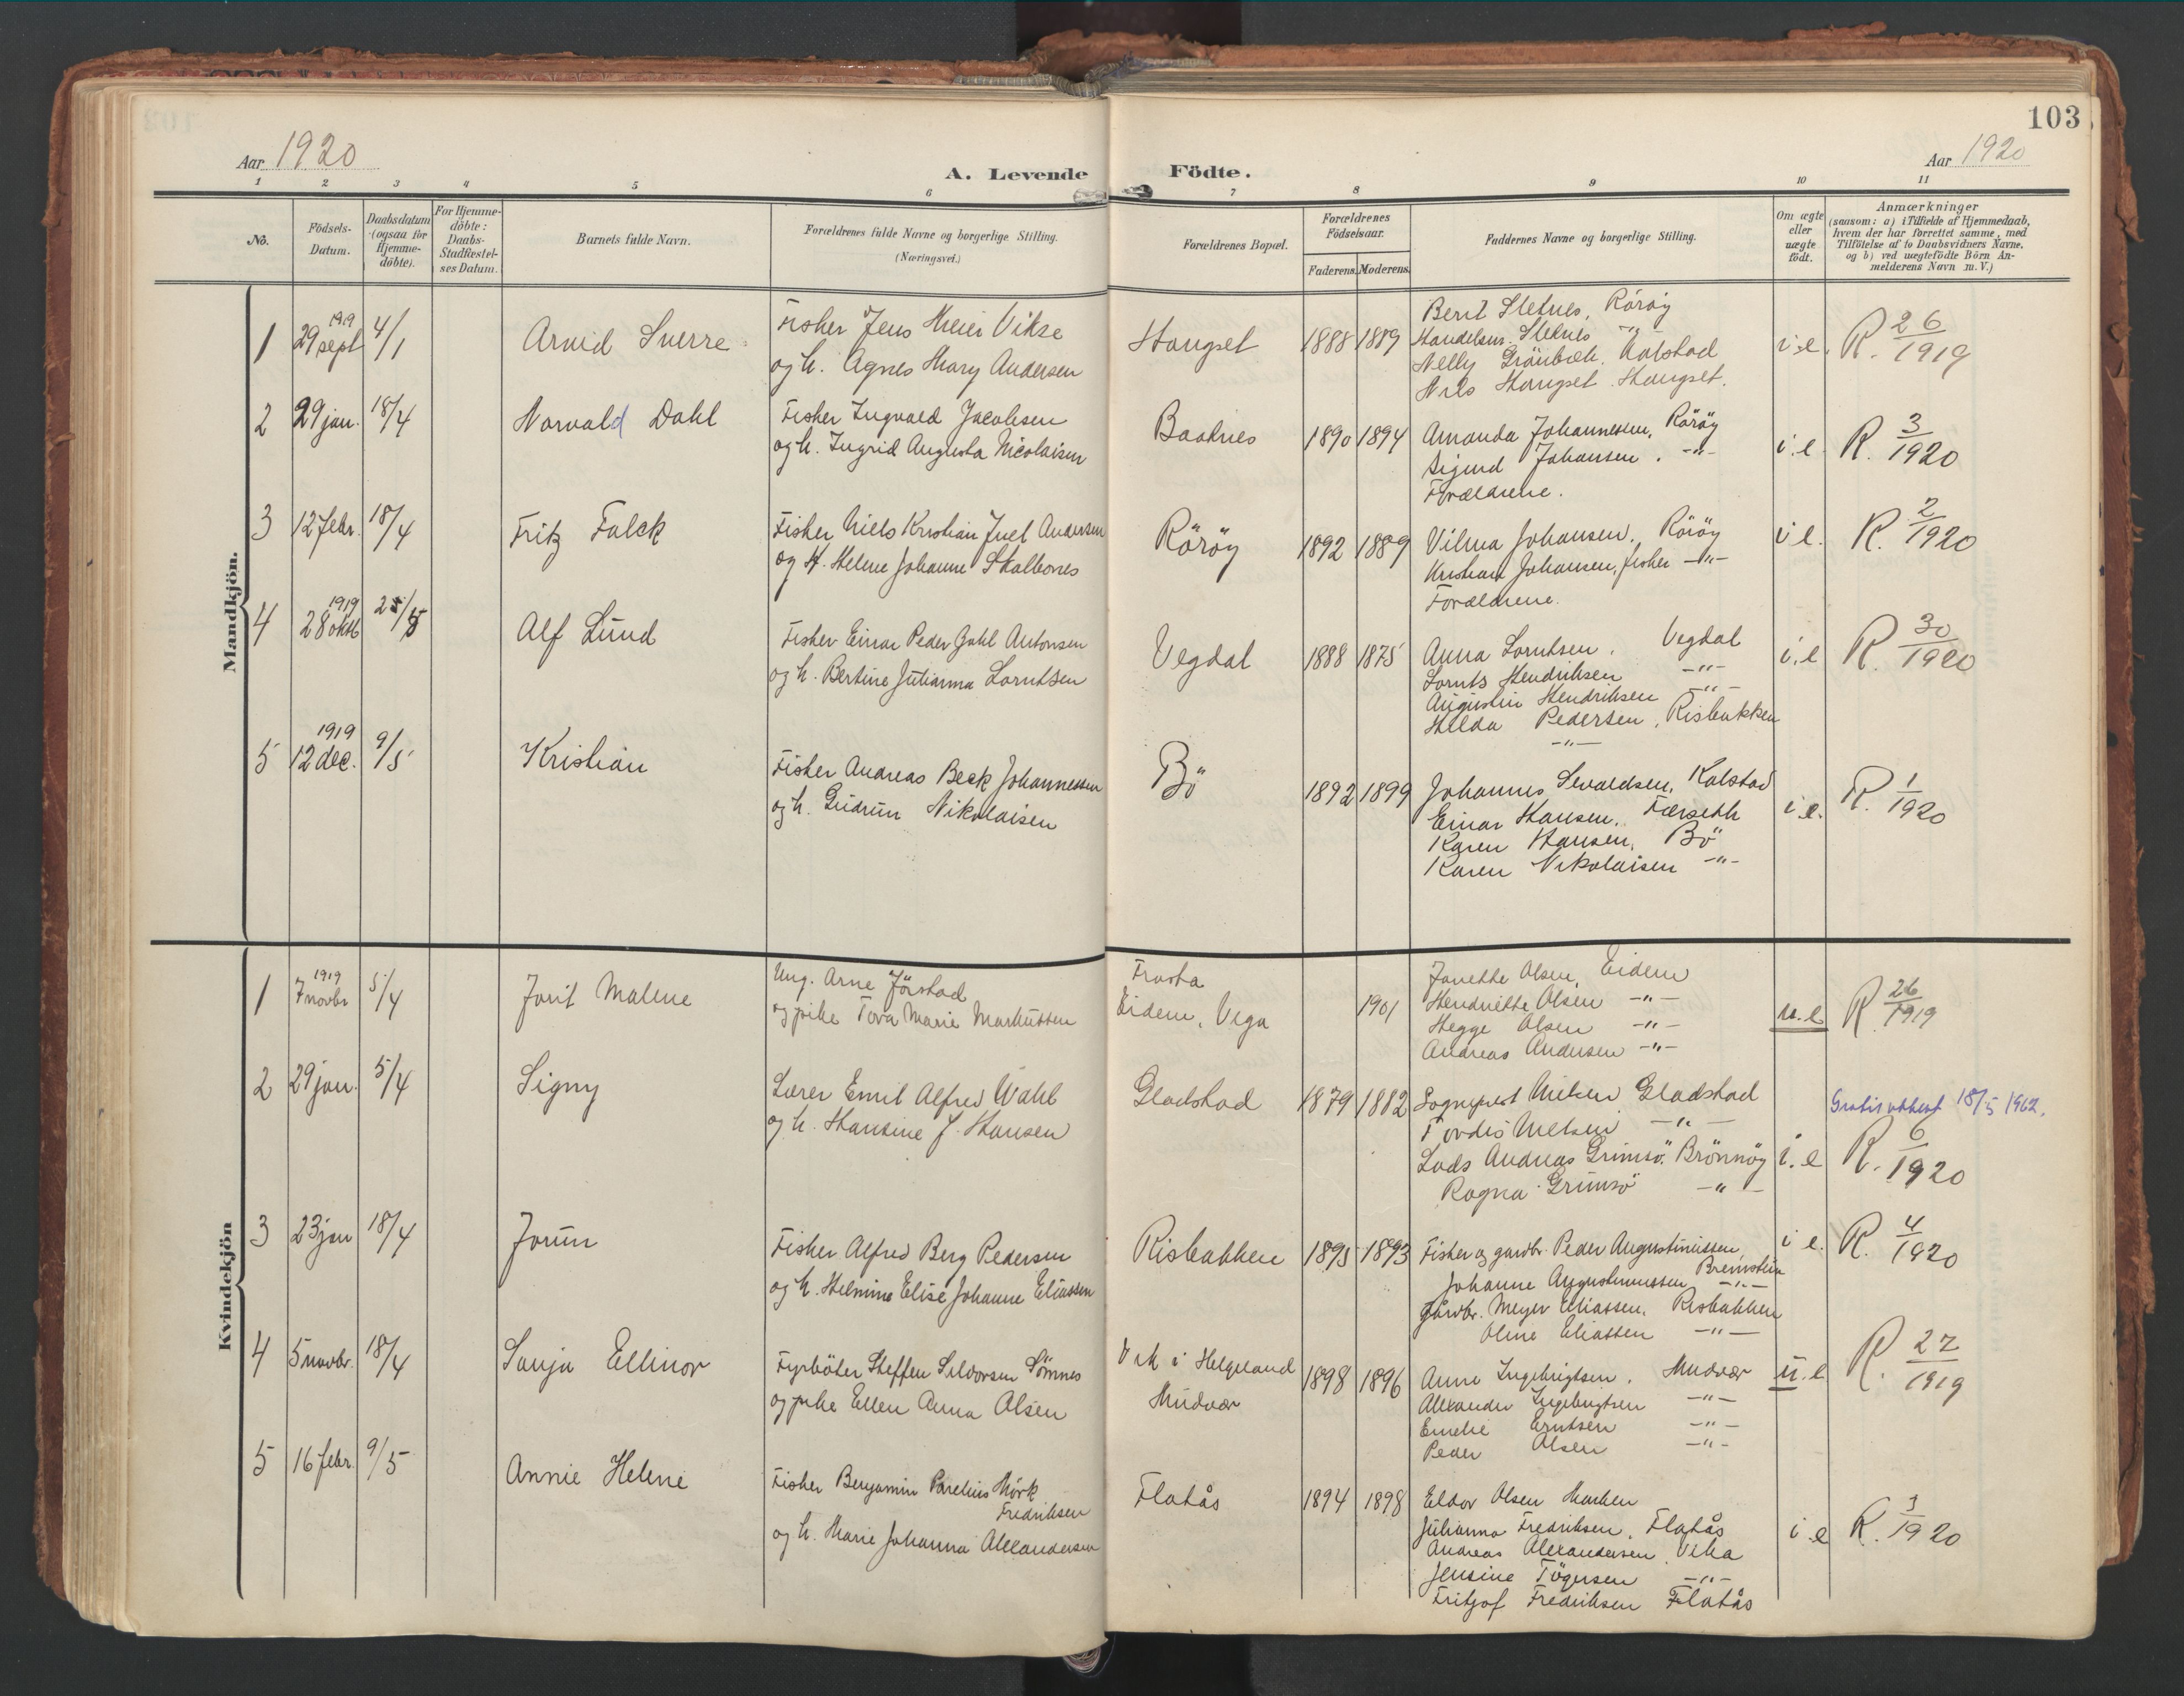 103
Aar 1920
A. Levende Födte.
Aar 1920
1 2 3 4 5 6 7 8 9 10 11
No.
Födsels-
Datum.
Daabsdatum
(ogsaa for
Hjemme-
döbte).
For Hjemme-
döbte:
Daabs-
Stadfæstel-
ses Datum.
Barnets fulde Navn.
Forældrenes fulde Navne og borgerlige Stilling.
(Næringsvei.)
Forældrenes Bopæl.
Forældrenes
Födselsaar.
Faderens. Moderens.
Faddernes Navne og borgerlige Stilling.
Om ægte
eller
uægte
födt.
Anmærkninger
(saasom: a) i Tilfælde af Hjemmedaab,
hvem der har forrettet samme, med
Tilföielse af to Daabsvidners Navne.
og b) ved uægtefödte Börn An-
melderens Navn m. V.)
Mandkjön.
1 1919 29 sept 4/1 Arvid Sverre
Fisker Jens Meier Vikse
og h. Agnes Mary Andersen
Hongset 1888 1889
Berit Sletnes, Röröy
Handelsm. Sletnes -"-
Nelly Grönbæk. Kolstad
Nils Hongset. Hongset.
i.e. R. 26/1919
2 29 jan. 18/4 Norvald Dahl
Fisker Ingvald Jacobsen
og h. Ingrid Augusta Nicolaisen
Baaknes 1890 1894
Amanda Johannessen, Röröy
Sigurd Johansen. -"-
Forældrene.
i.e. R. 3/1920
3 12 febr. 18/4 Fritz Falck
Fisker Niels Kristian Juel Andersen
og H. Helene Johanne Skalbones
Röröy 1892 1889
Vilma Johansen, Röröy
Kristian Johansen, fisker -"-
Forældrene.
i e. R. 2/1920
4 1919 28 oktb 25/5 Alf Lund
Fisker Einar Peder Dahl Antonsen
og h. Bertine Julianna Lorntsen
Vegdal 1888 1875
Anna Lorntsen. Vegdal
Lornts Hendriksen -"-
Augustin Hendriksen -"-
Hilda Pedersen, Risbakken
-"-
i.e R. 30/1920
5 1919 12 dec. 9/5 Kristian
Fisker Andreas Beck Johannessen
og h. Gudrun Nikolaisen
Bö 1892 1899
Johannes Sevaldsen, Kolstad
Einar Hansen. Færseth
Karen Hansen. Bö
Karen Nikolaisen -"-
i.e. R. 1/1920
Kvindekjön
1 1919 7 novbr 5/4 Jorit Malene
Ung. Arne Jörstad
og pike Tova Marie Markussen
Frosta
Eidem, Vega 1901
Janette Olsen, Eidem
Hendriette Olsen -"-
Hegge Olsen -"-
Andreas Andersen -"-
u.e R. 26/1919
2 29 jan. 5/4 Signy
Lærer Emil Alfred Wahl
og h. Hansine J. Hansen
Gladstad 1879 1882
Sogneprest Nielsen Gladstad
Tordis Nielsen -"-
Lods Andreas Grimsö. Brönnöy
Ragna Grimsö -"-
i.e
Gratis attest 18/5 1962.
R. 6/1920
3 23 jan 18/4 Jorun
Fisker Alfred Berg Pedersen
og h. Helmine Elise Johanne Eliassen
Risbakken 1895 1893
Fisker og gardbr. Peder Augustinussen,
Bremstein
Johanne Augustinussen -"-
gårdbr. Meyer Eliassen. Risbakken
Oline Eliassen -"-
i e. R. 4/1920
4 5 novbr. 18/4 Sonja Ellinor
Fyrböter Steffen Seldorsen Sömnes
og pike Ellen Anna Olsen
Vik i Helgeland
Mudvær 1898 1896
Anna Ingebrigtsen. Mudvær
Alexander Ingebrigtsen -"-
Emelie Erntsen -"-
Peder Olsen -"-
u.e. R. 27/1919
5 16 febr. 9/5 Annie Helene
Fisker Benjamin Parelius Mörk
Fredriksen
og h. Marie Johanna Alexandersen
Flatås 1894 1898
Eldor Olsen Marken
Julianna Fredriksen, Flatås
Andreas Alexandersen Vika
Jensine Tögersen -"-
Fritjof Fredriksen Flatås
i e R. 3/1920